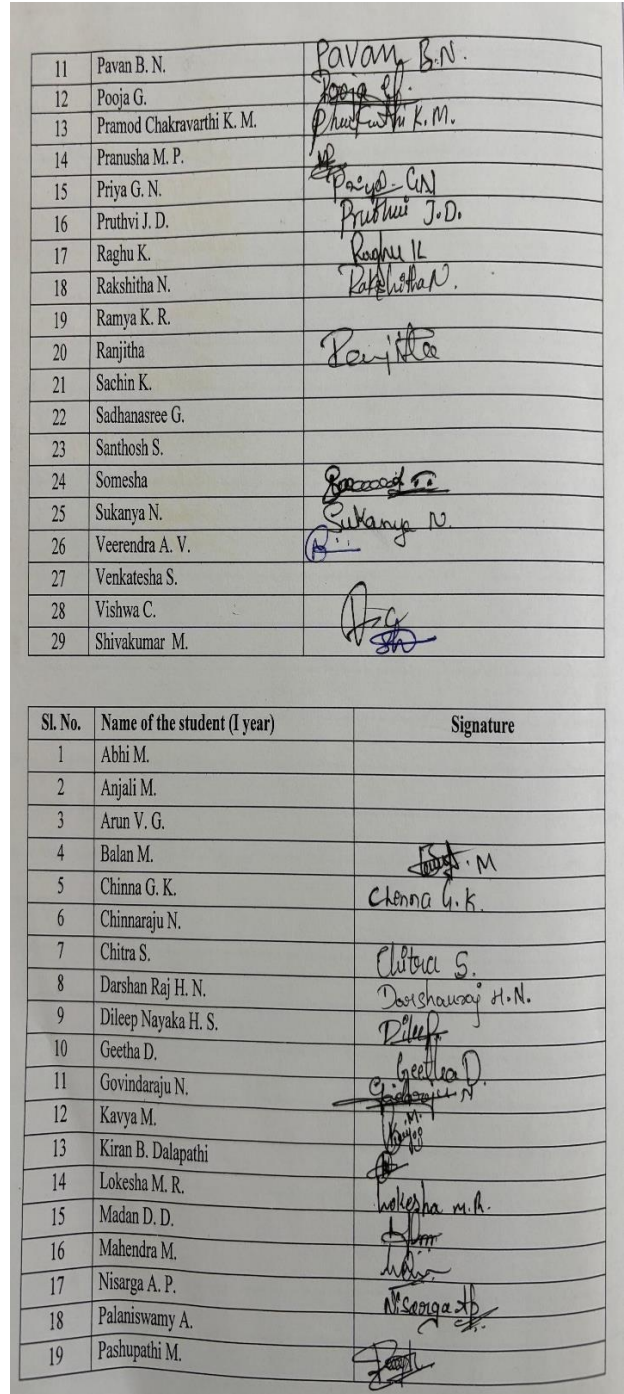 11 Pavan B. N. Pavan B.N.
12 Pooja G. Pooja
13 Pramod Chakravarthi K. M. K.M.
14 Pranusha M. P.
15 Priya G. N. Priya GN
16 Pruthvi J. D. Pruthvi J.D.
17 Raghu K. Raghu K
18 Rakshitha N. Rakshitha N.
19 Ramya K. R.
20 Ranjitha Ranjitha
21 Sachin K.
22 Sadhanasree G.
23 Santhosh S.
24 Somesha
25 Sukanya N. Sukanya N.
26 Veerendra A. V.
27 Venkatesha S.
28 Vishwa C.
29 Shivakumar M.
Sl. No. Name of the student (I year) Signature
1 Abhi M.
2 Anjali M.
3 Arun V. G.
4 Balan M. M
5 Chinna G. K. Chenna G.K.
6 Chinnaraju N.
7 Chitra S. Chitra S.
8 Darshan Raj H. N. Darshanraj H.N.
9 Dileep Nayaka H. S. Dileep
10 Geetha D. Geetha D.
11 Govindaraju N.
12 Kavya M.
13 Kiran B. Dalapathi
14 Lokesha M. R. Lokesha M.R.
15 Madan D. D.
16 Mahendra M.
17 Nisarga A. P. Nisarga AP
18 Palaniswamy A.
19 Pashupathi M.